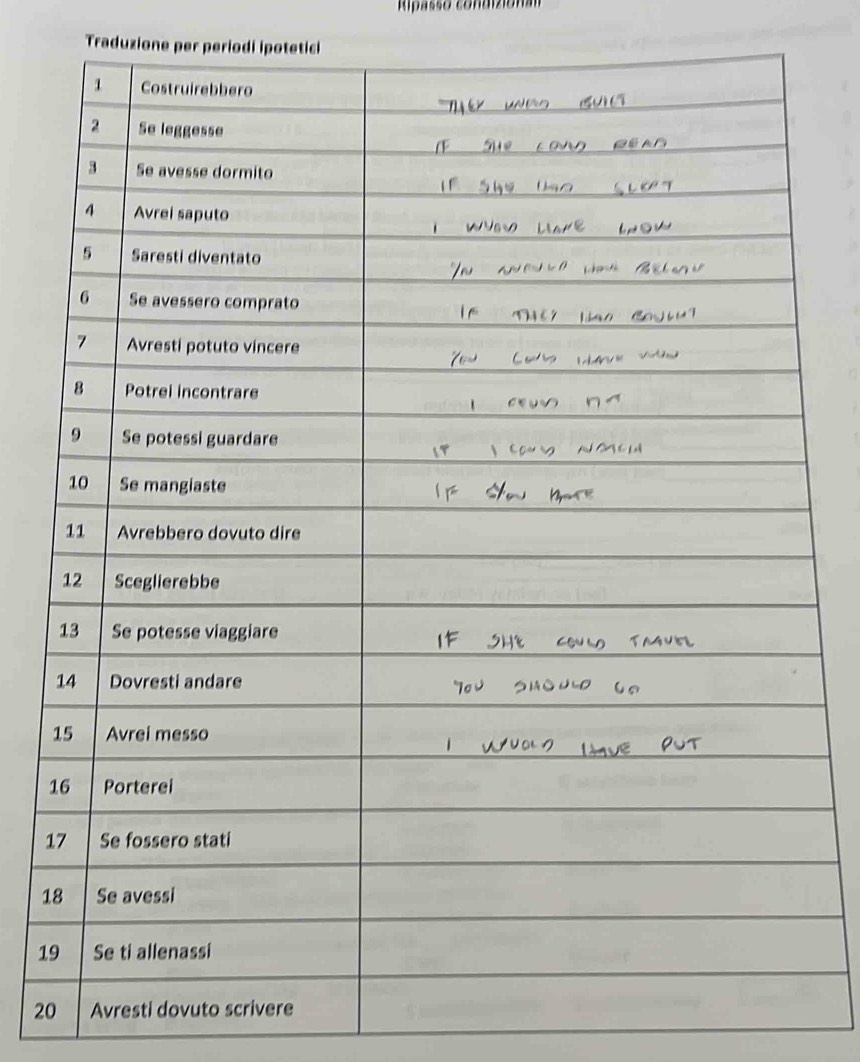 Ripasso condizionali
Traduzione per periodi ipotetici
1 Costruirebbero THEY WUOLD BUILT
2 Se leggesse IF SHE COULD READ
3 Se avesse dormito IF SHE HAD SLEPT
4 Avrei saputo I WUOLD HAVE KNOW
5 Saresti diventato HAVE
6 Se avessero comprato IF THEY HAD BOUGHT
7 Avresti potuto vincere YOU COULD HAVE
8 Potrei incontrare I COULD
9 Se potessi guardare IF I COULD WATCH
10 Se mangiaste IF
11 Avrebbero dovuto dire
12 Sceglierebbe
13 Se potesse viaggiare IF SHE COULD TRAVEL
14 Dovresti andare YOU SHOULD GO
15 Avrei messo I WUOLD HAVE PUT
16 Porterei
17 Se fossero stati
18 Se avessi
19 Se ti allenassi
20 Avresti dovuto scrivere